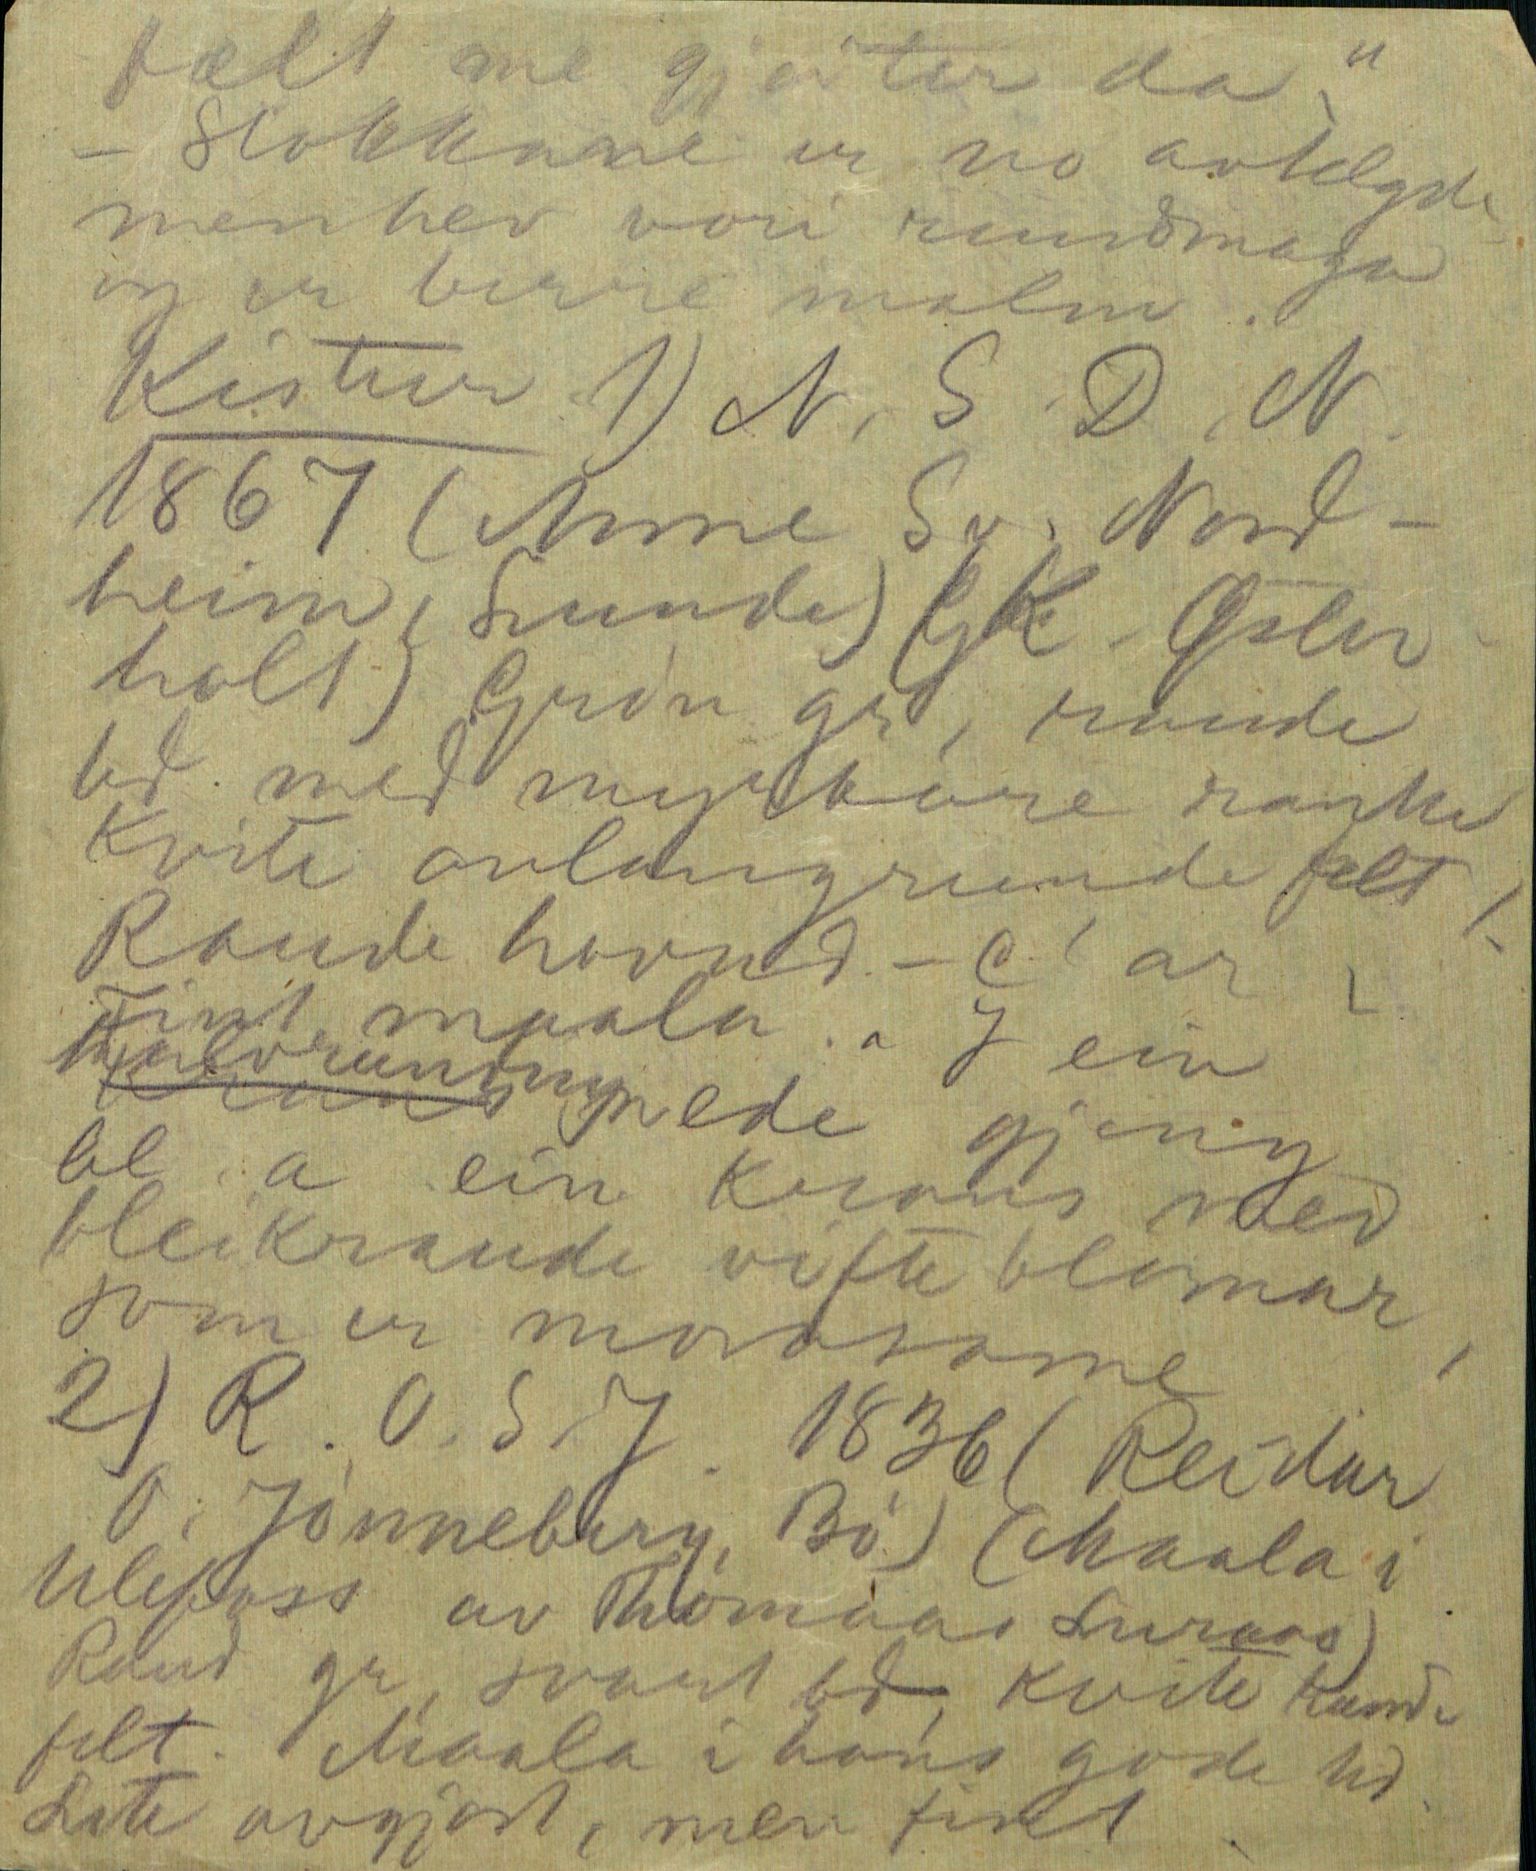 fælt me gjeiter da."
- Stokkane er no avtelgde
men hev vori rundmaga
og er berre malm.
Kistur 1) N. S. D. N.
1867 (Anne Sv. Nord-
heim, Sunde) (GK. Øster-
holt) Grön gr, raude
bd. med myrkare ranke
Kvite avlangrunde felt.
Raude hovud. - ar
Fint maala. - I ein
halvrunding nede gjeng
bl. a ein Krans med
bleikraude vifteblomar,
som er morosame
2) R. O. S. J. 1836 (Reidar
O. Jönneberg, Bö) (Maala i
Ulefoss av Thomaas Luraas)
Raud gr, svart bd, Kvite runde
felt. Maala i hans gode tid.
Lite avgjort, men fint.